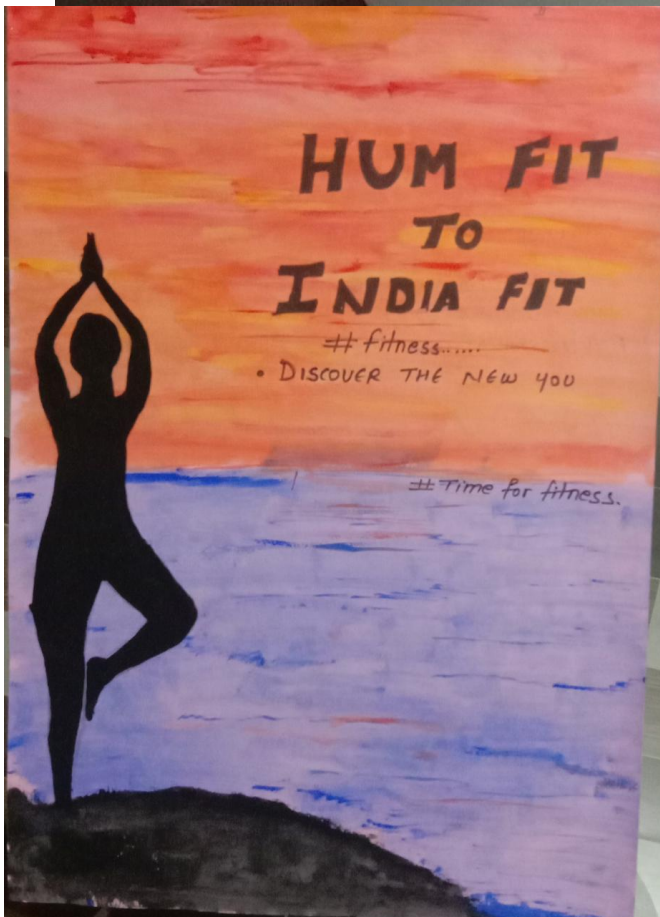 HUM FIT
TO
INDIA FIT
# fitness......
• DISCOVER THE NEW YOU
# Time for fitness.